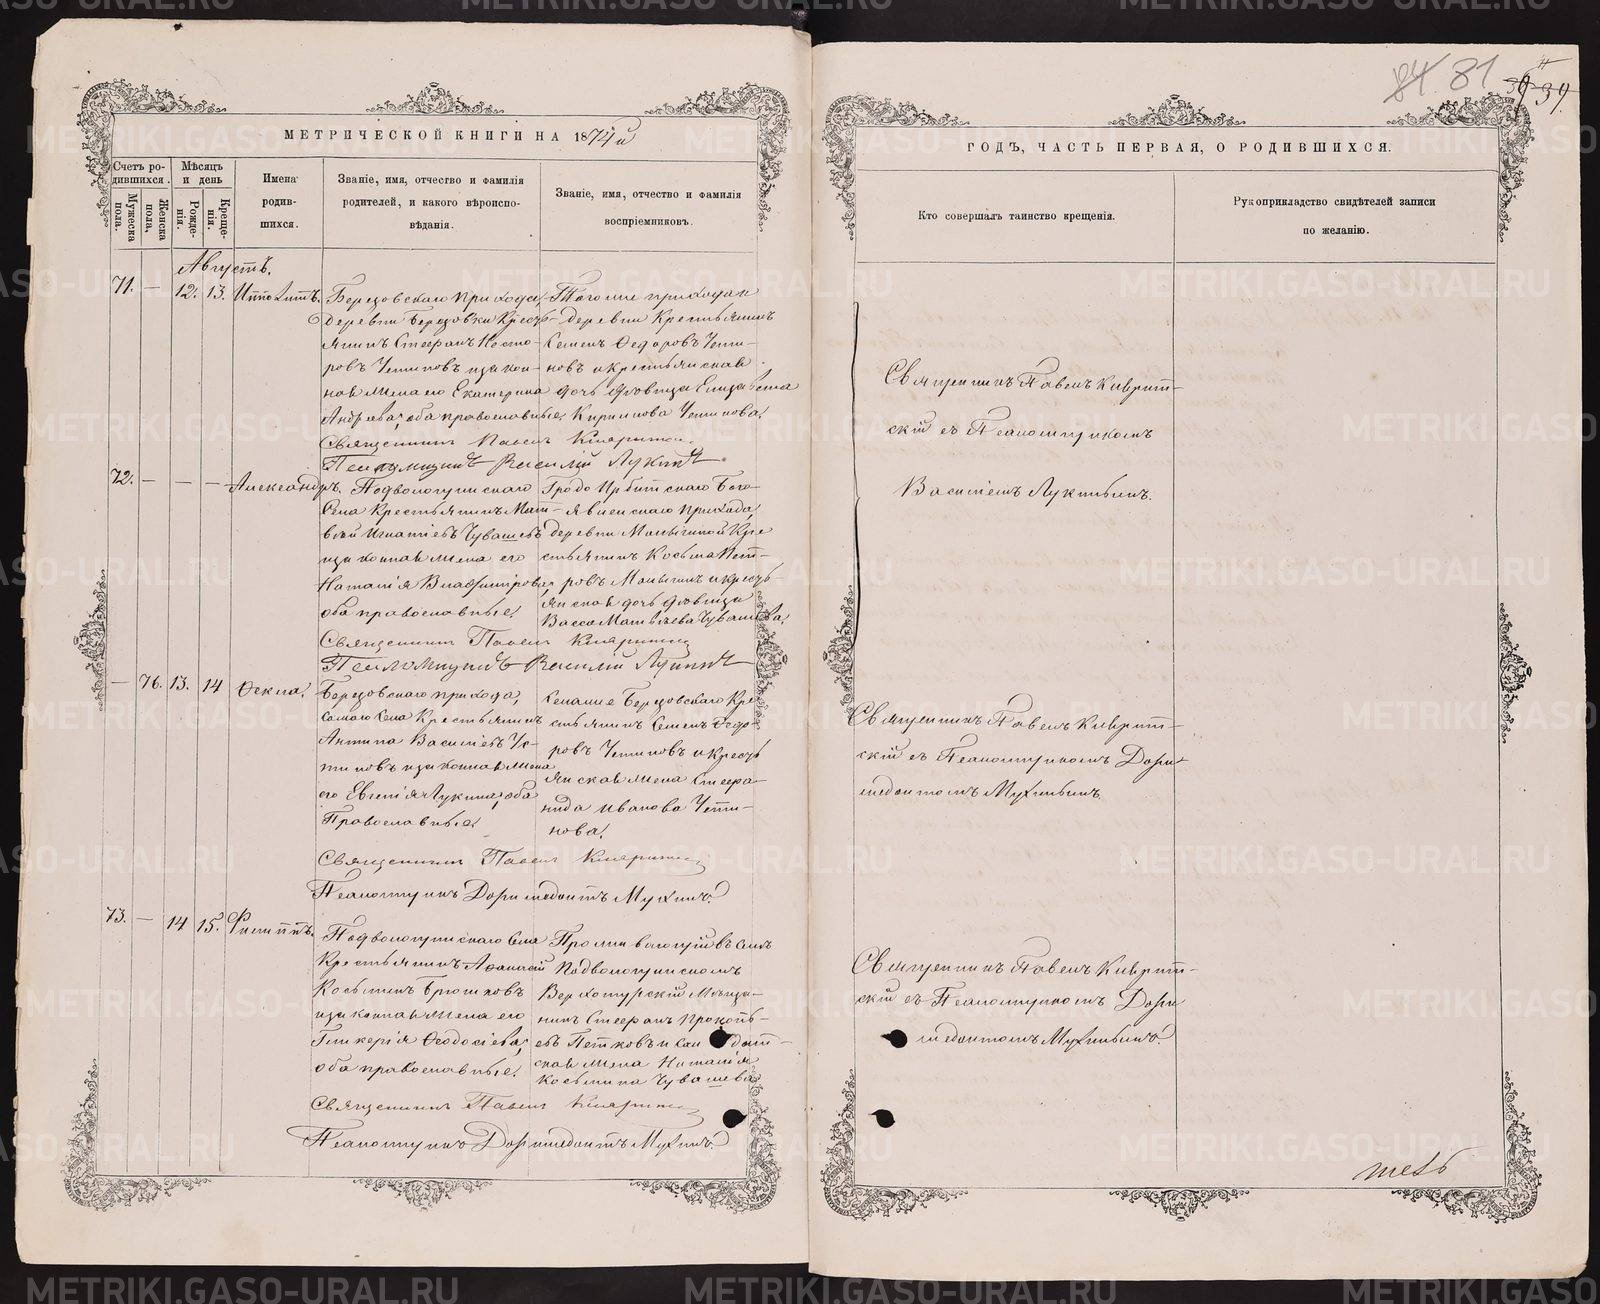 МЕТРИЧЕСКОЙ КНИГИ НА 1874й
Счетъ ро-
дившихся.
Мужеска
пола.
Женска
пола.
Мѣсяцъ
и день
Рожде-
нія.
Креще-
нія.
Имена
родив-
шихся.
Званіе, имя, отчество и фамилія
родителей, и какого вѣроиспо-
вѣданія.
Званіе, имя, отчество и фамилія
воспріемниковъ.
Августъ.
71. — 12. 13. Ипполитъ.
Березовскаго прихода,
деревни Березовки Кресть-
янинъ Стефанъ Несто-
ровъ Устиновъ и закон-
ная жена его Екатерина
Андреева, оба православные.
Тогоже прихода и
деревни Крестьянинъ
Семенъ Ѳедоровъ Усти-
новъ и крестьянская
дочь дѣвица Елизавета
Кирилова Устинова.
Священникъ Павелъ
Псаломщикъ Василій Лукинъ
72. — — — Александръ.
Подволошинскаго
Села Крестьянинъ Мат-
вѣй Игнатіевъ Чувашевъ
и законная жена его
Наталія Владимірова,
оба православные.
Ирбитскаго Бого-
явленскаго прихода,
деревни Крестьянинъ Косьма Пет-
ровъ и кресть-
янская дочь дѣвица
Васса Матвѣева Чувашева.
Священникъ Павелъ
Псаломщикъ Василій Лукинъ
— 76. 13. 14 Ѳекла.
Березовскаго прихода,
самаго Села Крестьянинъ
Антипа Василіевъ Ус-
тиновъ и законная жена
его Евгенія Лукина, оба
Православные.
Березовскаго Кре-
стьянинъ Семенъ Ѳедо-
ровъ Устиновъ и кресть-
янская жена Стефа-
нида Иванова Усти-
нова.
Священникъ Павелъ
Псаломщикъ Доримедонтъ Мухинъ.
73. — 14 15. Филиппъ.
Подволошинскаго Села
Крестьянинъ Аѳанасій
Косьминъ Брюховъ
и законная жена его
Гликерія Ѳеодосіева,
оба православные.
Проживающій въ Селѣ
Подволошинскомъ
Верхотурскій Мѣща-
нинъ Стефанъ Прокопь-
евъ и
жена Наталія
Косьмина Чувашева
Священникъ Павелъ
Псаломщикъ Доримедонтъ Мухинъ.
84. 81
39.
ГОДЪ, ЧАСТЬ ПЕРВАЯ, О РОДИВШИХСЯ.
Кто совершалъ таинство крещенія.
Рукоприкладство свидѣтелей записи
по желанію.
Священникъ Павелъ
скій съ Псаломщикомъ
Василіемъ Лукинымъ.
Священникъ Павелъ
скій съ Псаломщикомъ Дори-
медонтомъ Мухинымъ.
Священникъ Павелъ
скій съ Псаломщикомъ Дори-
медонтомъ Мухинымъ.
METRIKI.GASO-URAL.RU